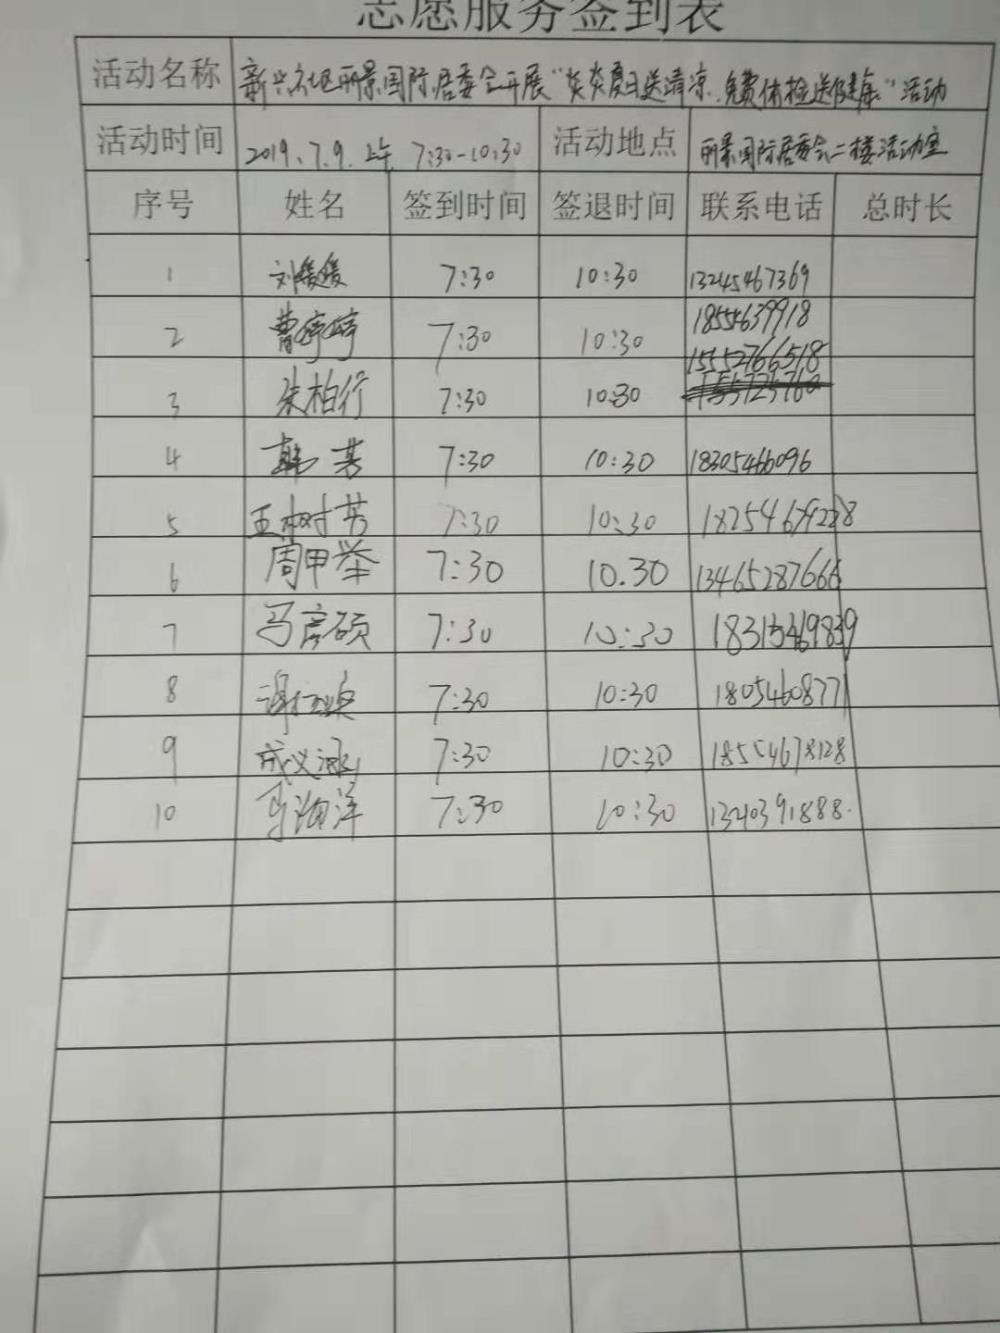 志愿服务签到表
活动名称 新兴社区丽景国际居委会开展“炎炎夏日送清凉.免费体检送健康”活动
活动时间 2019.7.9.上午 7:30-10:30 活动地点 丽景国际居委会二楼活动室
序号 姓名 签到时间 签退时间 联系电话 总时长
1 刘媛媛 7:30 10:30 13245467369
2 曹婷婷 7:30 10:30 18554639918
3 朱柏行 7:30 10:30 15552766518
4 韩芳 7:30 10:30 18305466096
5 王树芳 7:30 10:30 18254679228
6 周甲举 7:30 10.30 13465287666
7 马彦硕 7:30 10:30
8 7:30 10:30 18054608771
9 成义涵 7:30 10:30 18554678128
10 马海洋 7:30 10:30 1340391888.